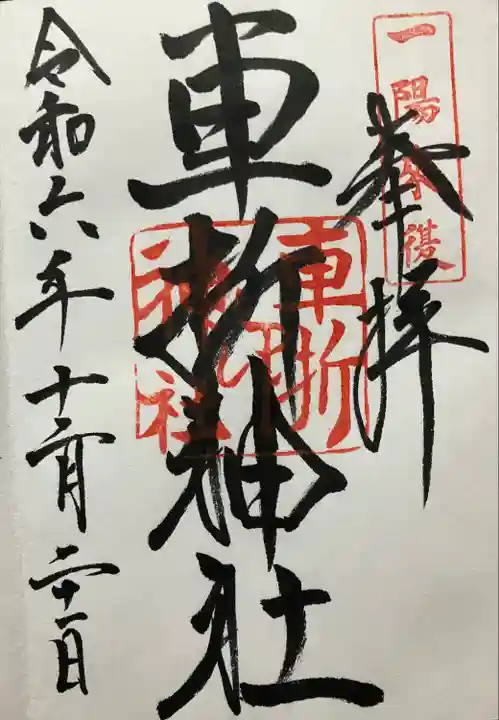 一陽来復
奉拝
車折神社
車折
神社
令和六年十二月二十一日